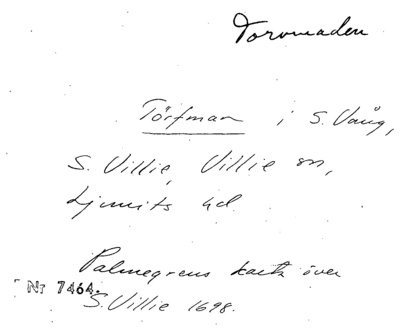 Torvmaden
Törfman i S. Vång,
S. Villie, Villie sn,
Ljunits hd.
Palmegrens karta över
Nr 7464.
S. Villie 1698.